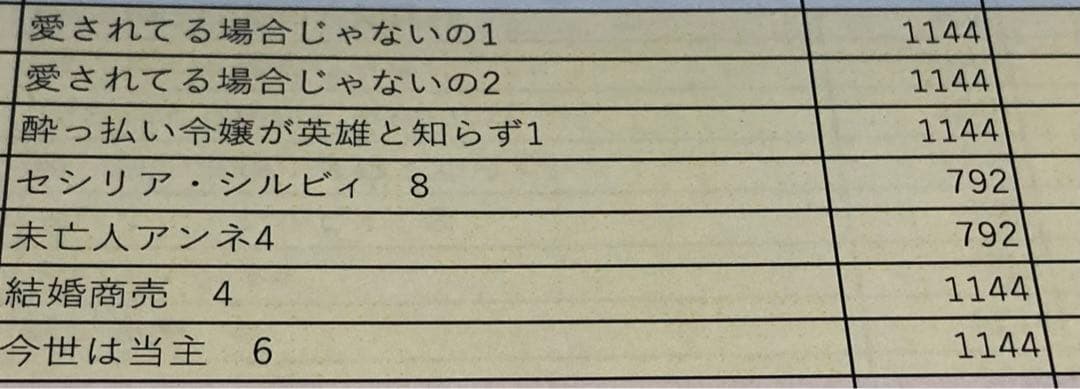 愛されてる場合じゃないの1 1144
愛されてる場合じゃないの2 1144
酔っ払い令嬢が英雄と知らず1 1144
セシリア・シルビィ 8 792
未亡人アンネ4 792
結婚商売 4 1144
今世は当主 6 1144